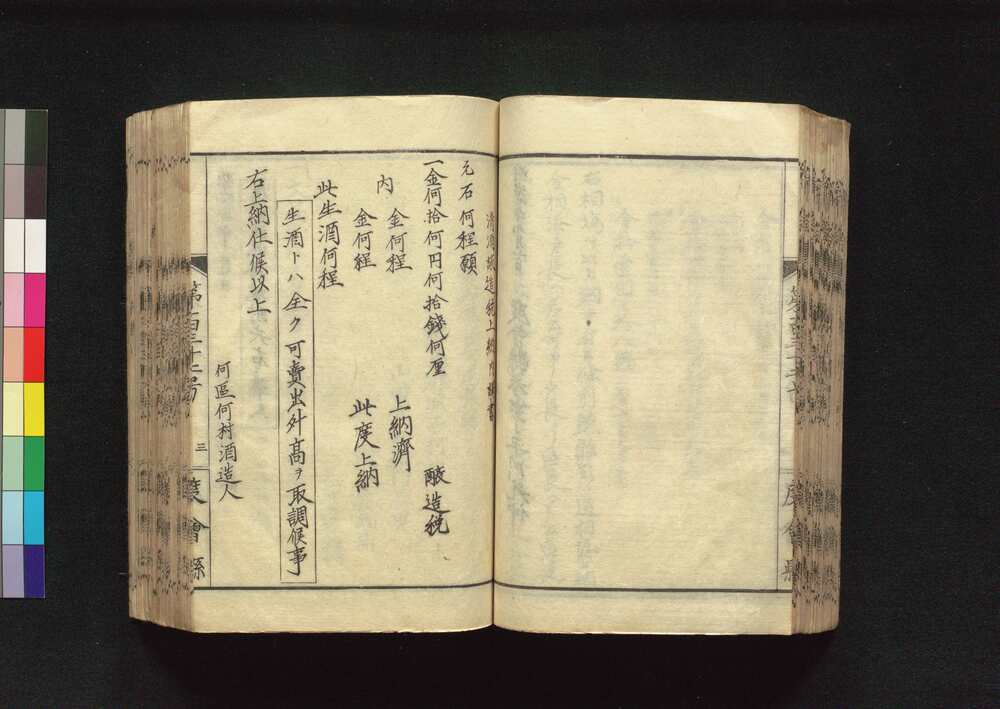 清酒醸造税上納内譯書
元石何程願
一金何拾何円何拾錢何厘　醸造税
内　金何程　上納濟
金何程　此度上納
此生酒何程
生酒トハ全ク可賣出外高ヲ取調候事
右上納仕候以上
何區何村酒造人
三
度會縣
度會縣